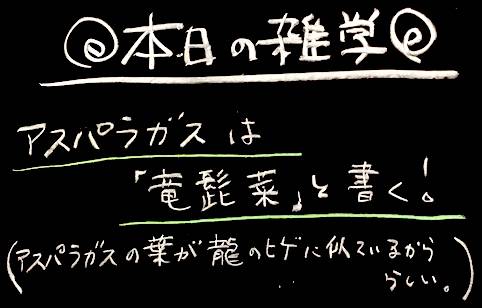 @本日の雑学@
アスパラガスは
「竜髭菜」と書く!
(アスパラガスの葉が龍のヒゲに似ているから
らしい。)